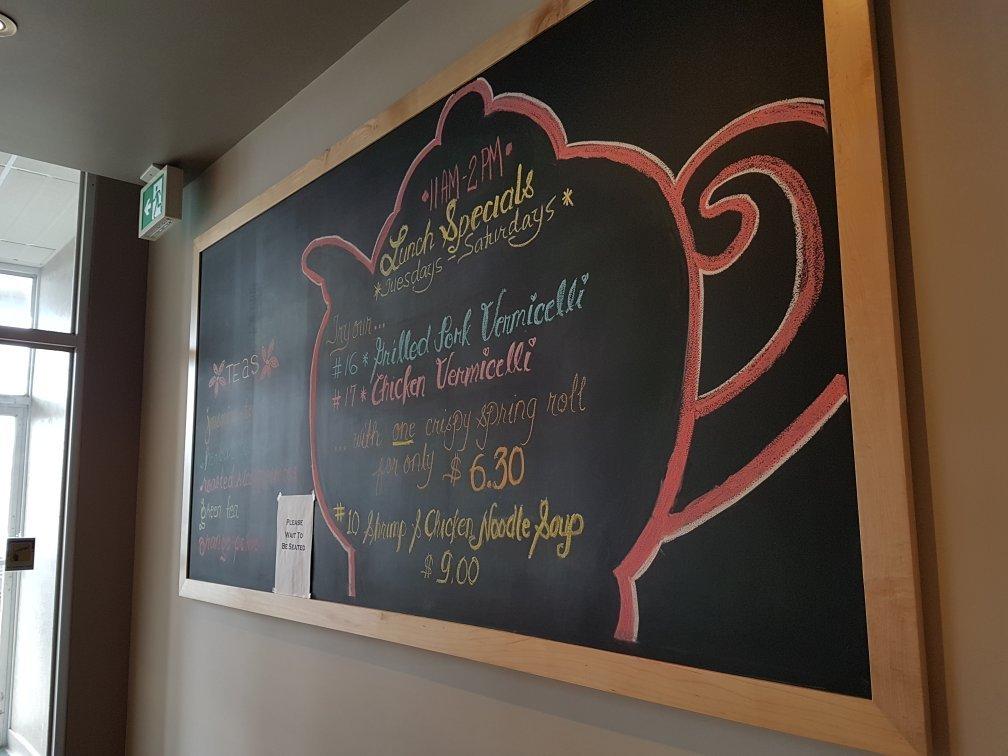 11AM-2PM
Lunch Specials
*Tuesdays - Saturdays*
Try our...
#16 * Grilled Pork Vermicelli
#17 * Chicken Vermicelli
... with one crispy spring roll
for only $6.30
#10 Shrimp & Chicken Noodle Soup
$9.00
Teas
roasted
green tea
PLEASE
WAIT TO
BE SEATED